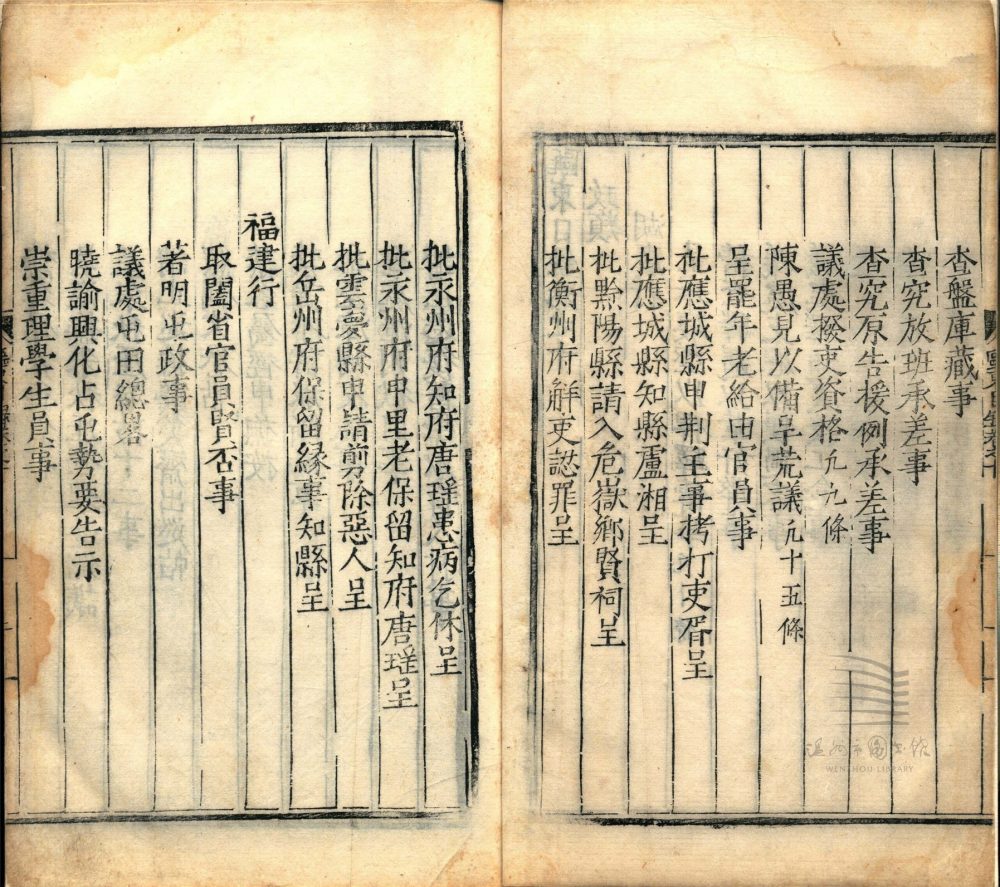 查盤庫藏事
查究放班承差事
查究原告援例承差事
議處撥吏資格凡九條
陳愚見以備呈荒議凡十五條
呈罷年老給由官員事
批應城縣申荆主事拷打吏胥呈
批應城縣知縣盧湘呈
批黔陽縣請入危嶽鄉賢祠呈
批衡州府解吏認罪呈
批永州府知府唐瑶患病乞休呈
批永州府申里老保留知府唐瑶呈
批雲夢縣申請剪除惡人呈
批岳州府保留緣事知縣呈
福建行
取闔省官員賢否事
著明屯政事
議處屯田總畧十二事
曉諭興化占屯勢要告示
崇重理學生員事
温州市图书馆
WENZHOU LIBRARY